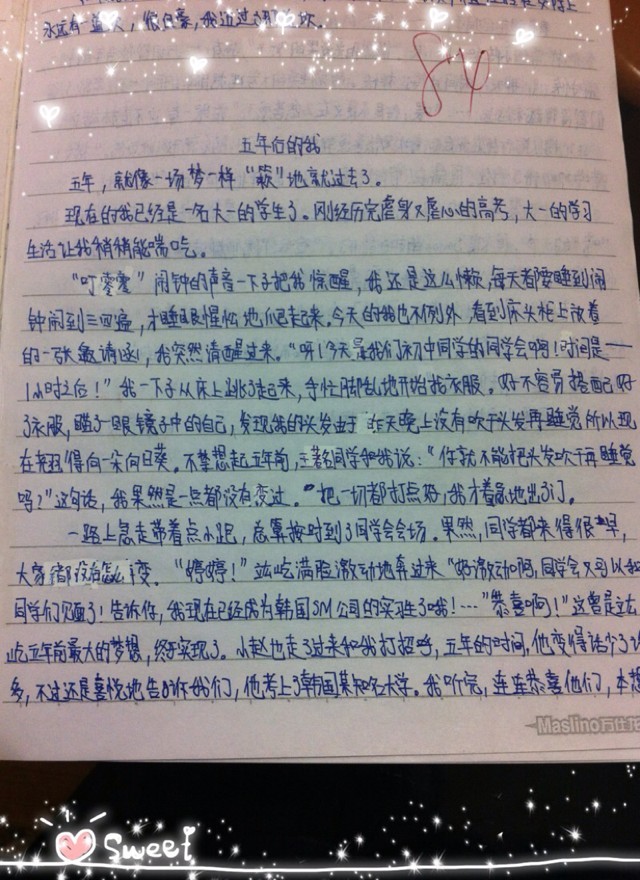 永远有蓝天，
84
五年后的我
五年，就像一场梦一样“蔌”地就过去了。
现在的我已经是一名大一的学生了。刚经历完虐身又虐心的高考，大一的学习
生活让我稍稍能喘吃。
“叮零零”闹钟的声音一下子把我惊醒，我还是这么懒，每天都要睡到闹
钟闹到三四遍，才睡眼惺忪地爬起来。今天的我也不例外，看到床头柜上放着
的一张邀请函，我突然清醒过来。“呀！今天是我们初中同学的同学会啊！时间是一
1小时之后！”我一下子从床上跳了起来，手忙脚乱地开始找衣服。好不容易搭配好
了衣服，瞄了一眼镜子中的自己，发现我的头发由于昨天晚上没有吹干头发再睡觉所以现
在翘得向一朵向日葵。不禁想起五年前，王同学和我说：“你就不能把头发吹干再睡觉
吗？”这句话，我果然是一点都没有变过。把一切都打点好，我才着急地出了门。
一路上急走带着点小跑，总算按时到了同学会会场。果然，同学都来得很早，
大家都没有怎么变。“婷婷！”竑屹满脸激动地奔过来“好激动啊，同学会又可以和
同学们见面了！告诉你，我现在已经成为韩国SM公司的实习生了哦！…”“恭喜啊！”这曾是竑
屹五年前最大的梦想，终于实现了。小赵也走了过来和我打招呼，五年的时间，他变得话少了许
多，不过还是喜悦地告诉我们，他考上了韩国某知名大学。我听完，连连恭喜他们，本想
Maslino万仕龙
Sweet